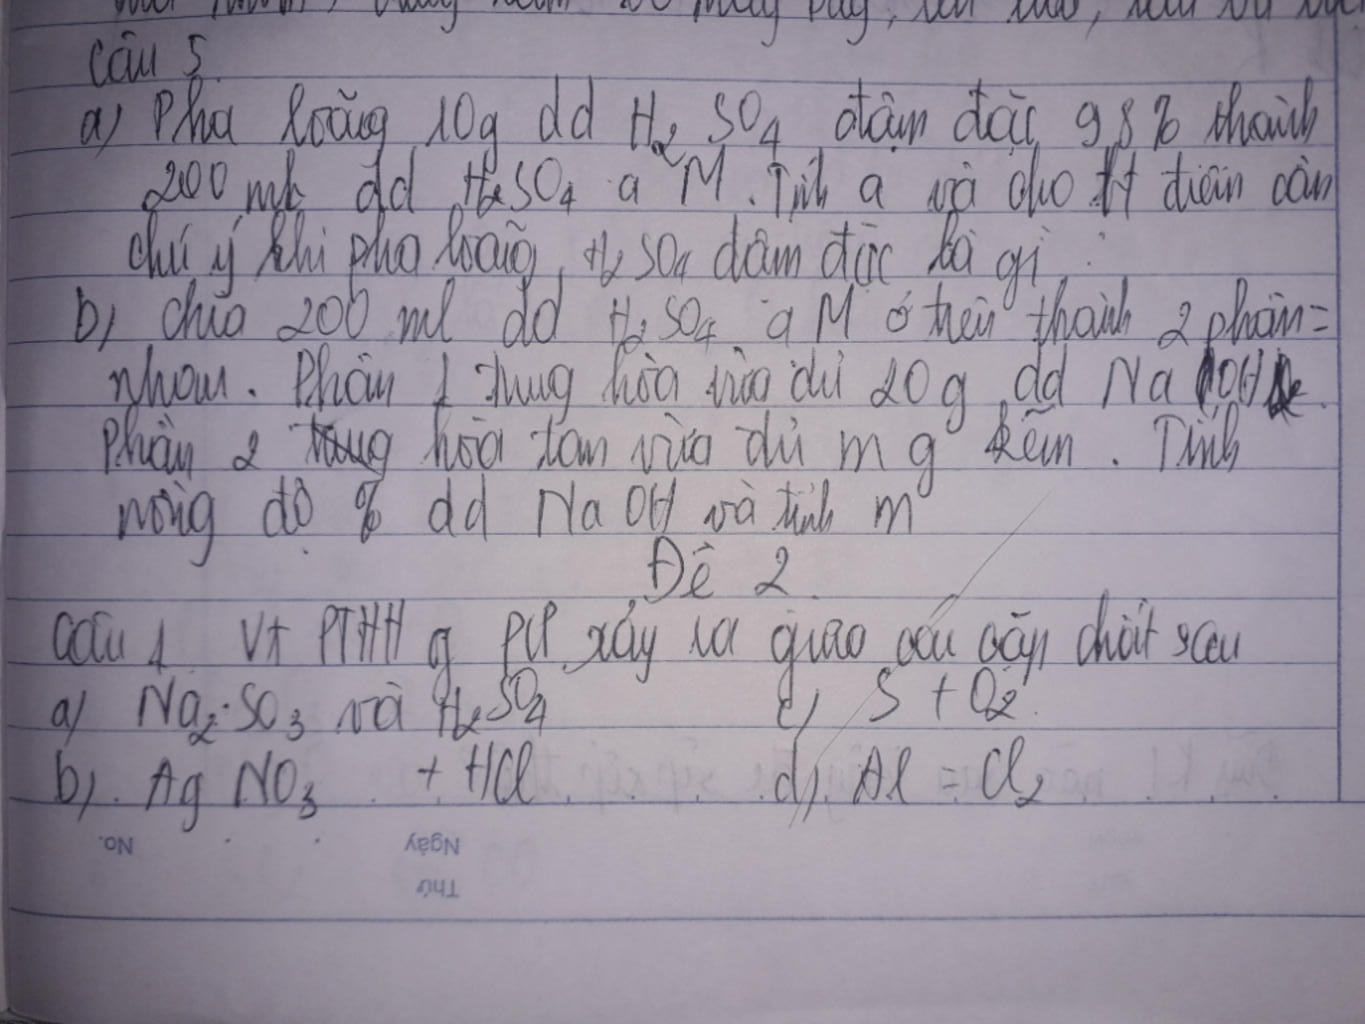 Câu 5
a) Pha loãng 10g dd H₂SO₄ đậm đặc 98% thành
200 ml dd H₂SO₄ a M. Tính a và cho biết điều cần
chú ý khi pha loãng H₂SO₄ đậm đặc là gì
b) Chia 200 ml dd H₂SO₄ a M ở trên thành 2 phần =
nhau. Phần 1 trung hòa vừa đủ 20 g dd NaOH
Phần 2 hòa tan vừa đủ m g kẽm. Tính
nồng độ % dd NaOH và tính m
Đề 2
Câu 1 Vt PTHH PƯ xảy ra giữa các cặp chất sau
a) Na₂SO₃ và H₂SO₄ c) S + O₂
b) AgNO₃ + HCl d) Al = Cl₂
No. Ngày
Thứ